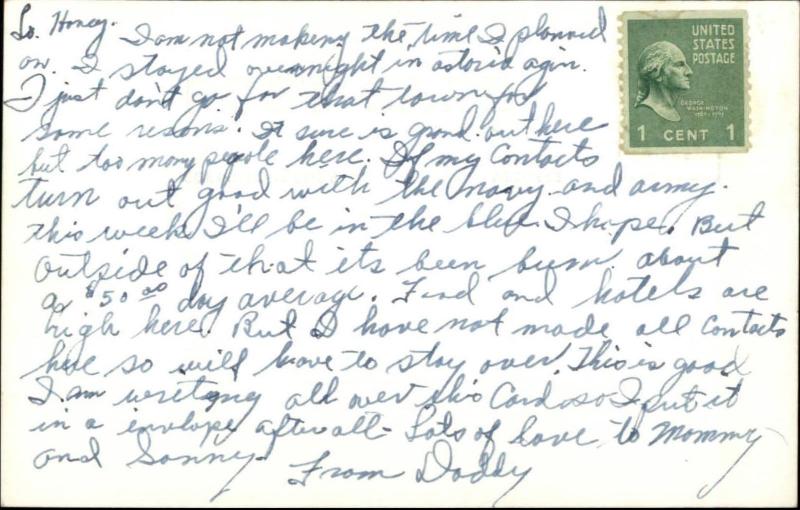 Lo. Honey. I am not making the time I planned
on. I stayed overnight in astoria agin.
I just don't go for that town for
some resons. It sure is grand out here
but too many people here. If my Contacts
turn out good with the navy and army.
this week I'll be in the blue I hope. But
outside of that its been bum about
a $50 00 day average. Food and hotels are
high here. But I have not made all Contacts
here so will have to stay over. This is good
I am writeing all over this Card so I put it
in a envelope after all - Lots of love to Mommy
and Sonny.
From Daddy
UNITED
STATES
POSTAGE
GEORGE
WASHINGTON
1 CENT 1